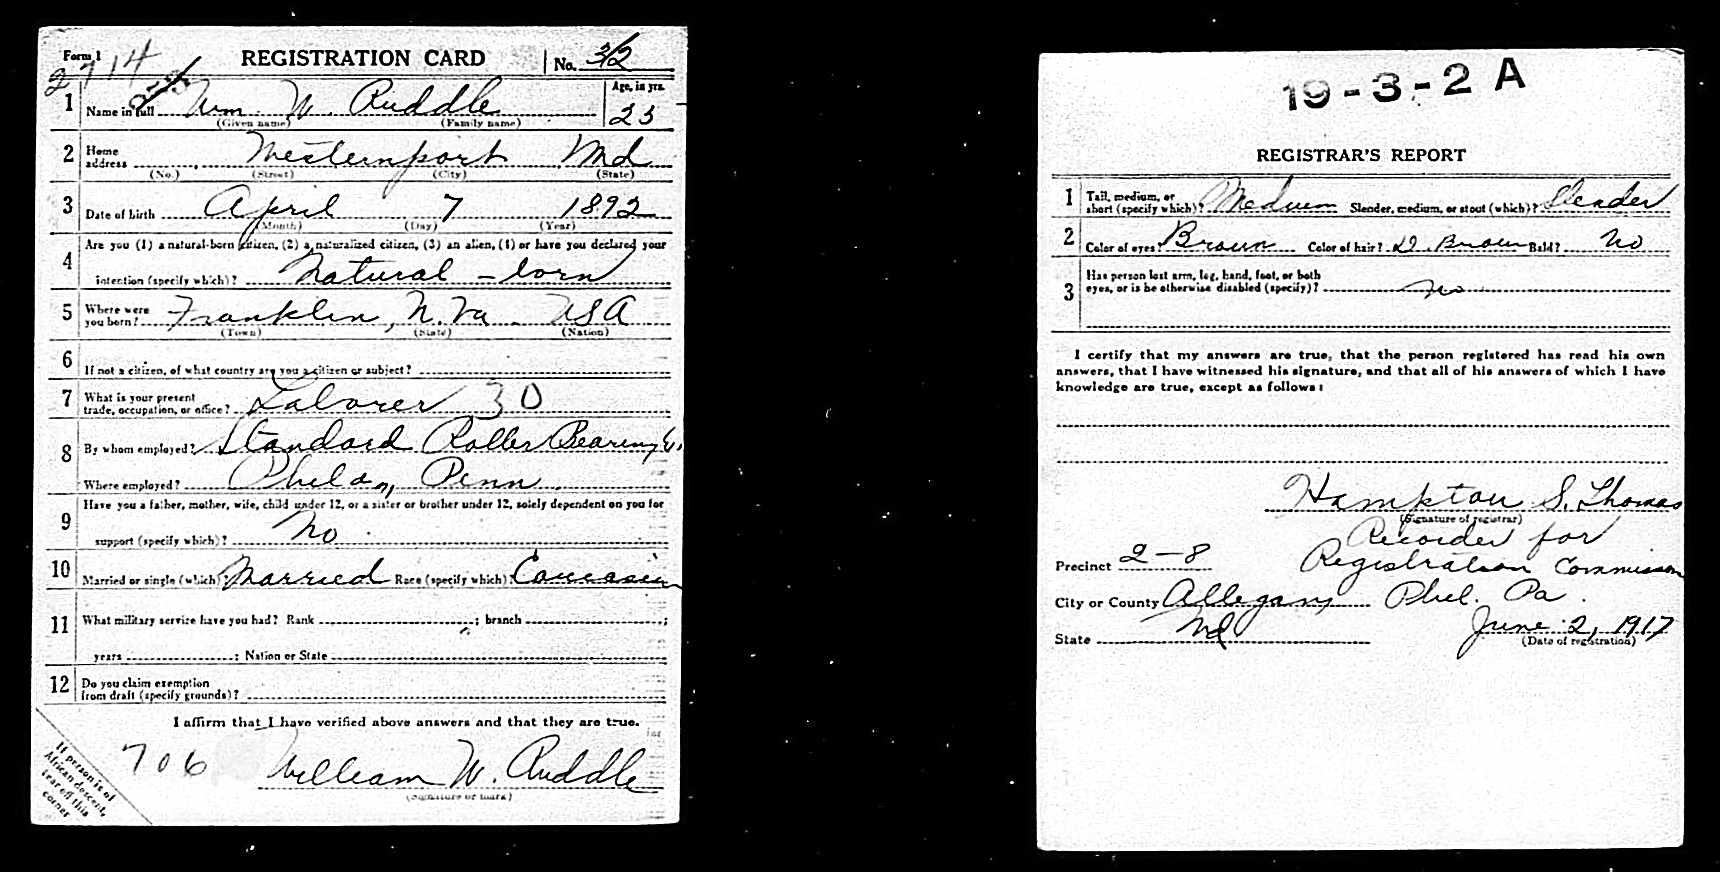 Form 1 REGISTRATION CARD No. 312
2714
1 Name in full Wm. W. Ruddle Age, in yrs. 25
(Given name) (Family name)
2 Home address Westernport Md
(No.) (Street) (City) (State)
3 Date of birth April 7 1892
(Month) (Day) (Year)
4 Are you (1) a natural-born citizen, (2) a naturalized citizen, (3) an alien, (4) or have you declared your
intention (specify which)? Natural-born
5 Where were you born? Franklin, W. Va USA
(Town) (State) (Nation)
6 If not a citizen, of what country are you a citizen or subject?
7 What is your present trade, occupation, or office? Laborer 30
8 By whom employed? Standard Roller Bearing Co.
Where employed? Phila, Penn.
9 Have you a father, mother, wife, child under 12, or a sister or brother under 12, solely dependent on you for
support (specify which)? No
10 Married or single (which)? Married Race (specify which)? Caucasian
11 What military service have you had? Rank ; branch ;
years ; Nation or State
12 Do you claim exemption
from draft (specify grounds)?
I affirm that I have verified above answers and that they are true.
706 William W. Ruddle
(Signature or mark)
If person is of
African descent,
tear off this
corner
19-3-2 A
REGISTRAR'S REPORT
1 Tall, medium, or
short (specify which)? Medium Slender, medium, or stout (which)? Slender
2 Color of eyes? Brown Color of hair? D. Brown Bald? No
3 Has person lost arm, leg, hand, foot, or both
eyes, or is he otherwise disabled (specify)? No
I certify that my answers are true, that the person registered has read his own
answers, that I have witnessed his signature, and that all of his answers of which I have
knowledge are true, except as follows:
Hampton S. Thomas
(Signature of registrar)
Recorder for
Precinct 2-8 Registration Commission
City or County Allegany Phil. Pa.
State Md June 2, 1917
(Date of registration)